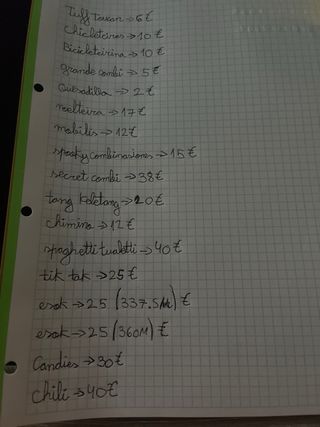 Tuff Toucan → 6 €
Chicleteiras → 10 €
Bicicleteirina → 10 €
grande combi → 5 €
Quesadilla → 2 €
noelteira → 17 €
mobilis → 12 €
spooky combinasiones → 15 €
secret combi → 38 €
tang Keletang → 20 €
chimino → 12 €
spaghetti tualetti → 40 €
tik tak → 25 €
esok → 25 (337.5M) €
esok → 25 (360M) €
Candies → 30 €
Chili → 40 €